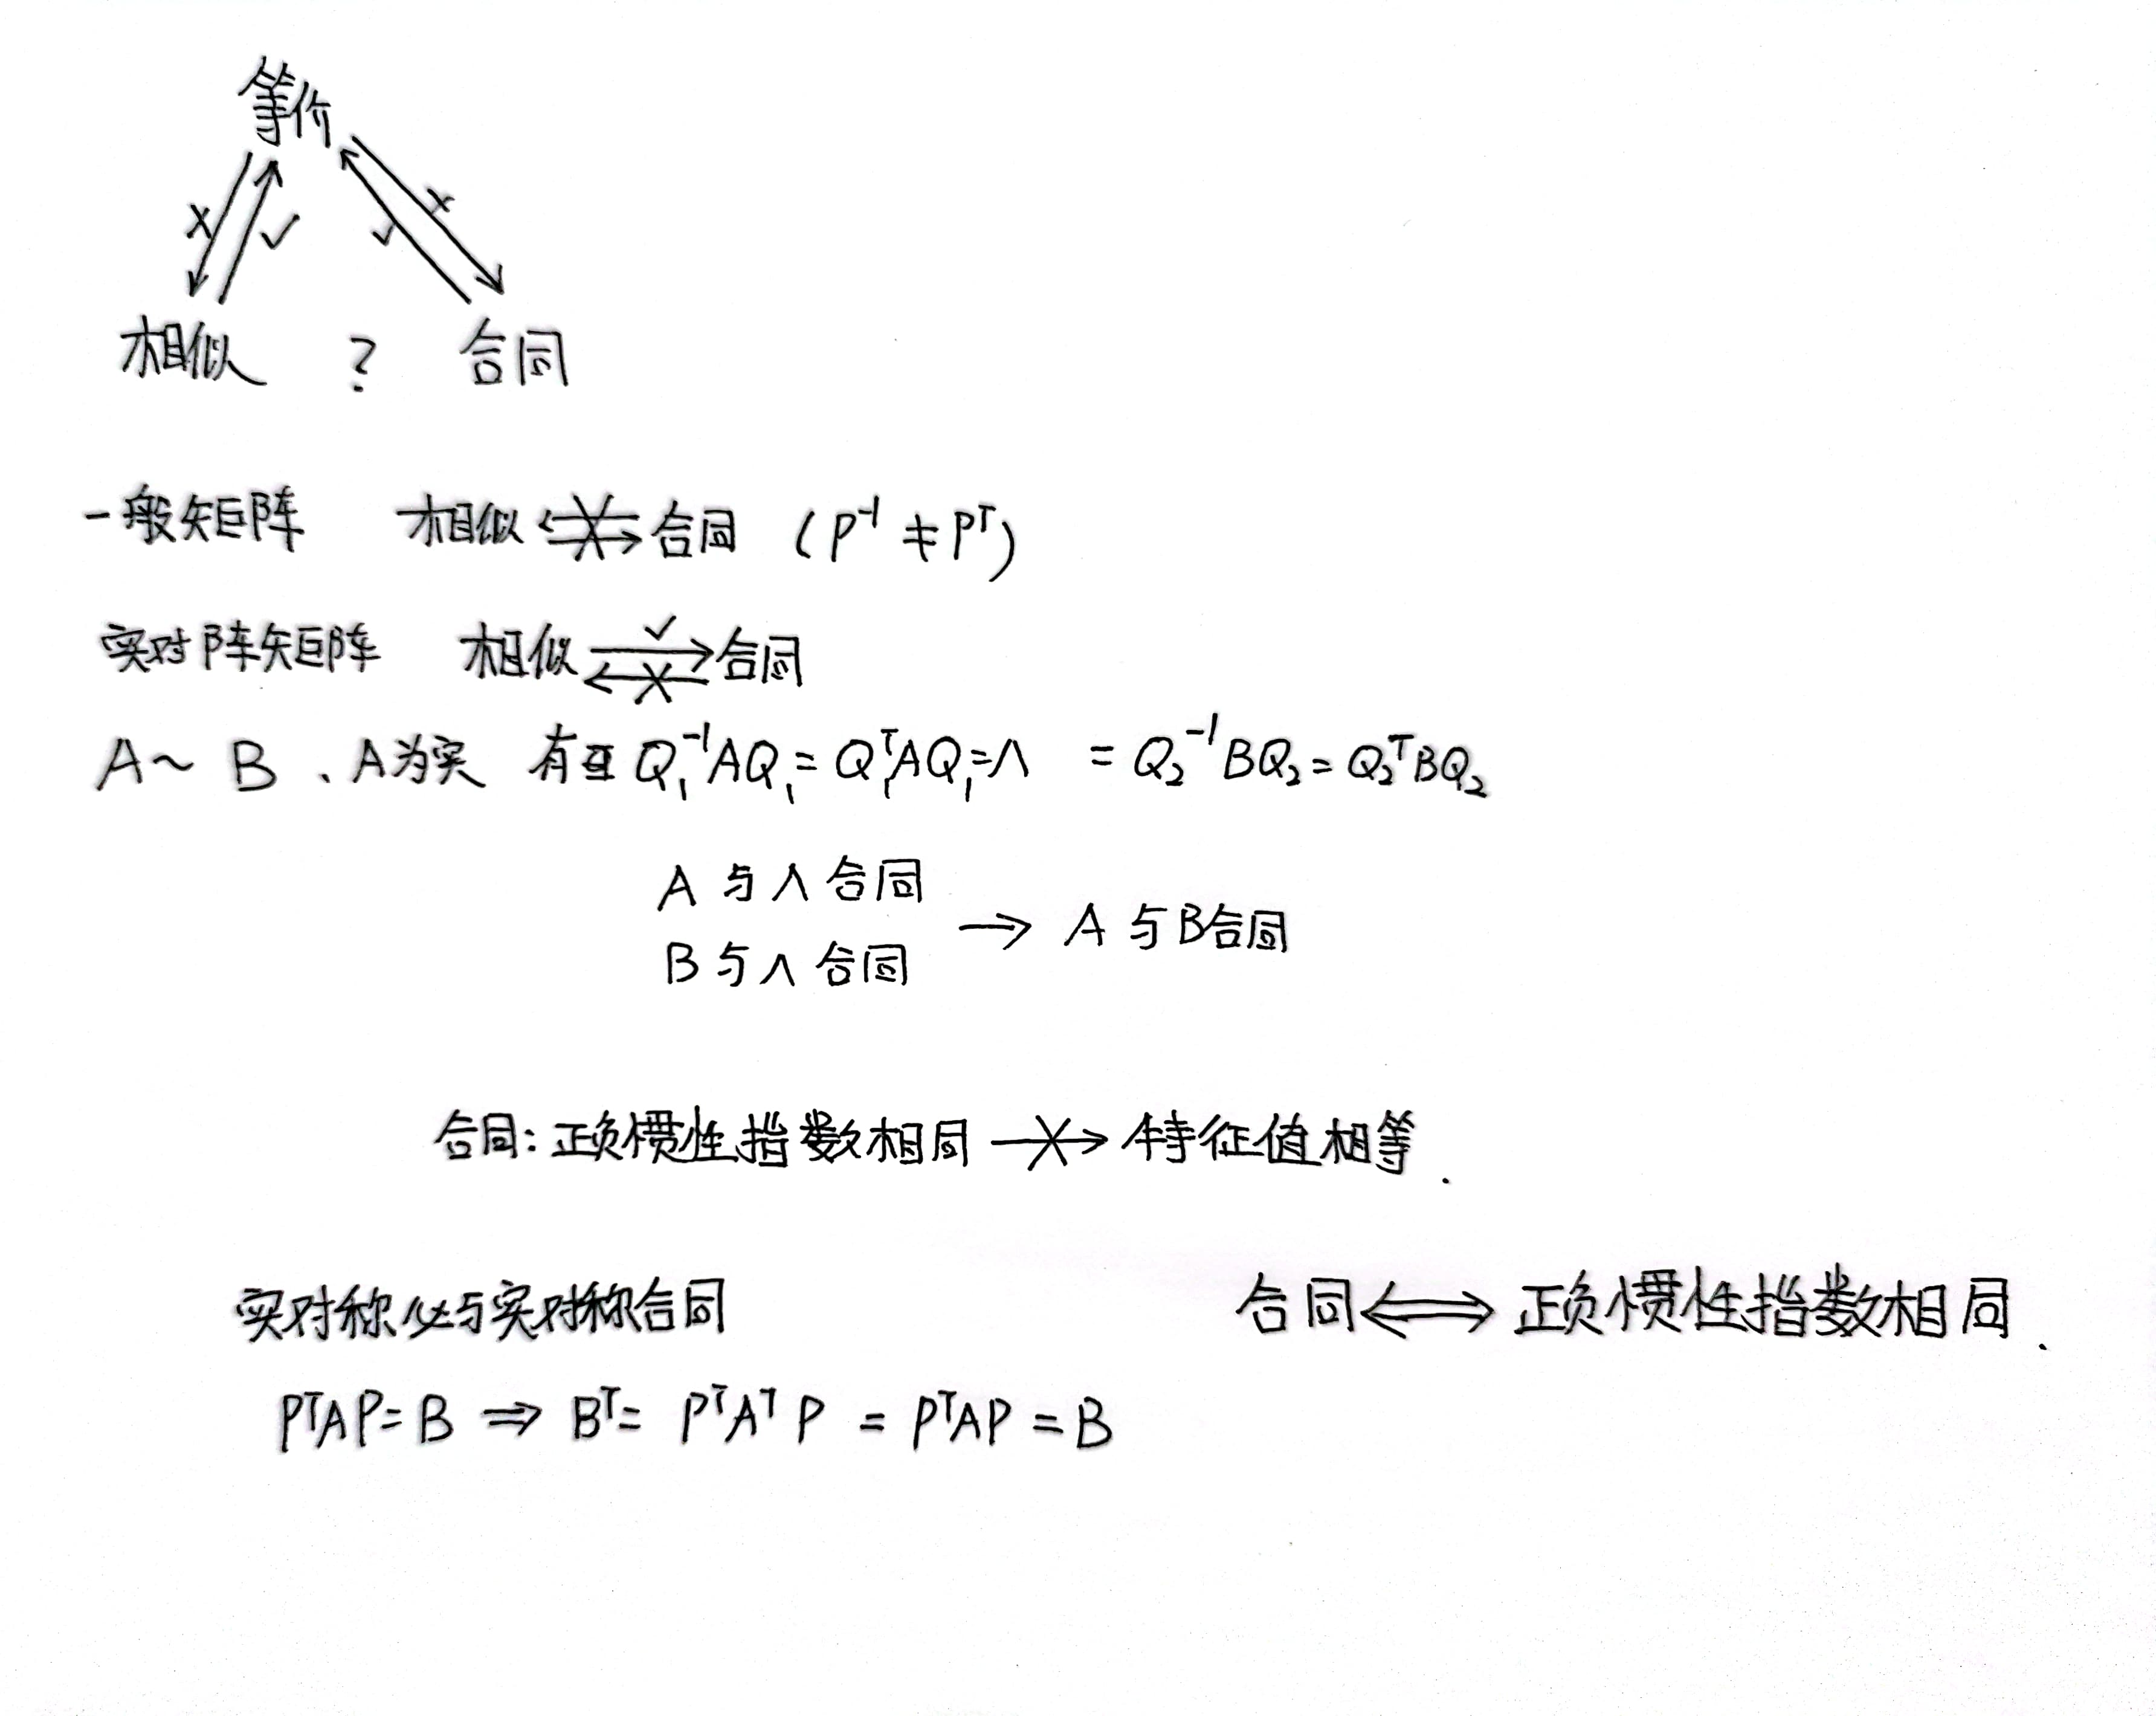 等价
× ✓ ✓ ×
相似 ? 合同
一般矩阵 相似 合同 (P⁻¹ ≠ Pᵀ)
实对阵矩阵 相似 ✓ × 合同
A ~ B 、A为实 有 Q₁⁻¹AQ₁ = Q₁ᵀAQ₁ = Λ = Q₂⁻¹BQ₂ = Q₂ᵀBQ₂
A 与 Λ 合同
B 与 Λ 合同 → A 与 B 合同
合同: 正负惯性指数相同 特征值相等.
实对称必与实对称合同 合同 ⟺ 正负惯性指数相同.
PᵀAP = B ⇒ Bᵀ = PᵀAᵀP = PᵀAP = B